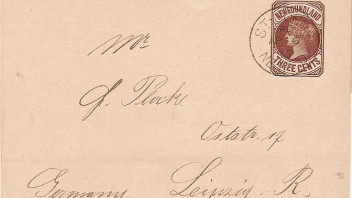 NEWFOUNDLAND
THREE CENTS
ST
Mr
Oststr.
Germany. Leipzig. R.